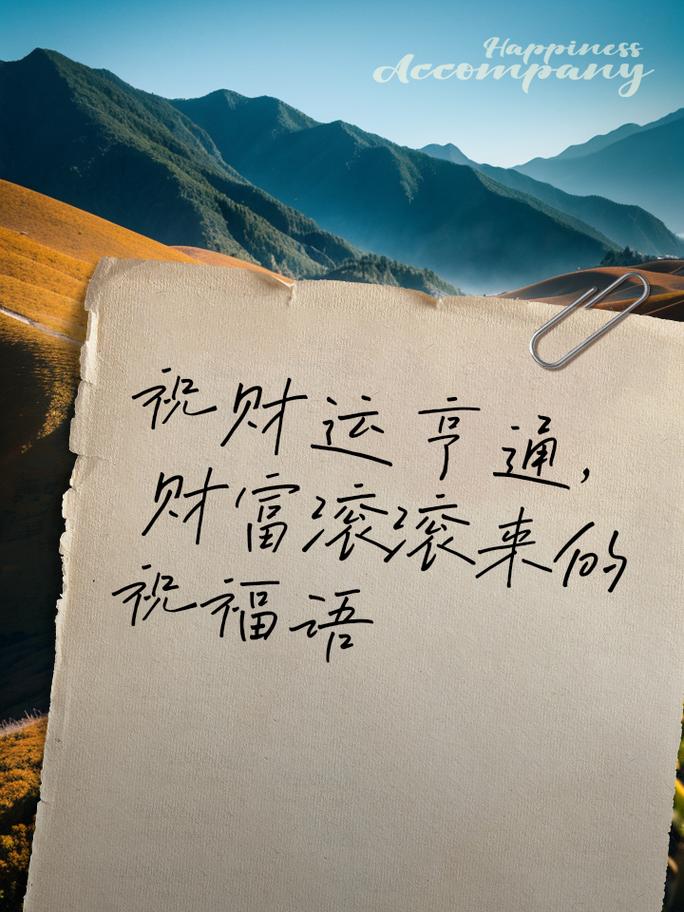 Happiness
Accompany
祝财运亨通,
财富滚滚来的
祝福语